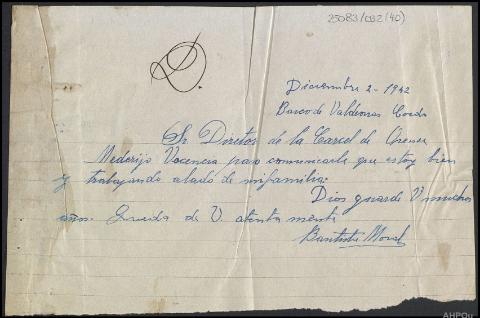 25083/032 (40)
Diciembre 2-1942
Barco de Valdeorras
Sr Diretor de la Carcel de Orense
Mederijo Vocencia para comunicarle que estoy bien
y trabajando alado de mifamilia.
Dios guarde V muchos
años. Queda de V. atenta mente
Bautista
AHPOu